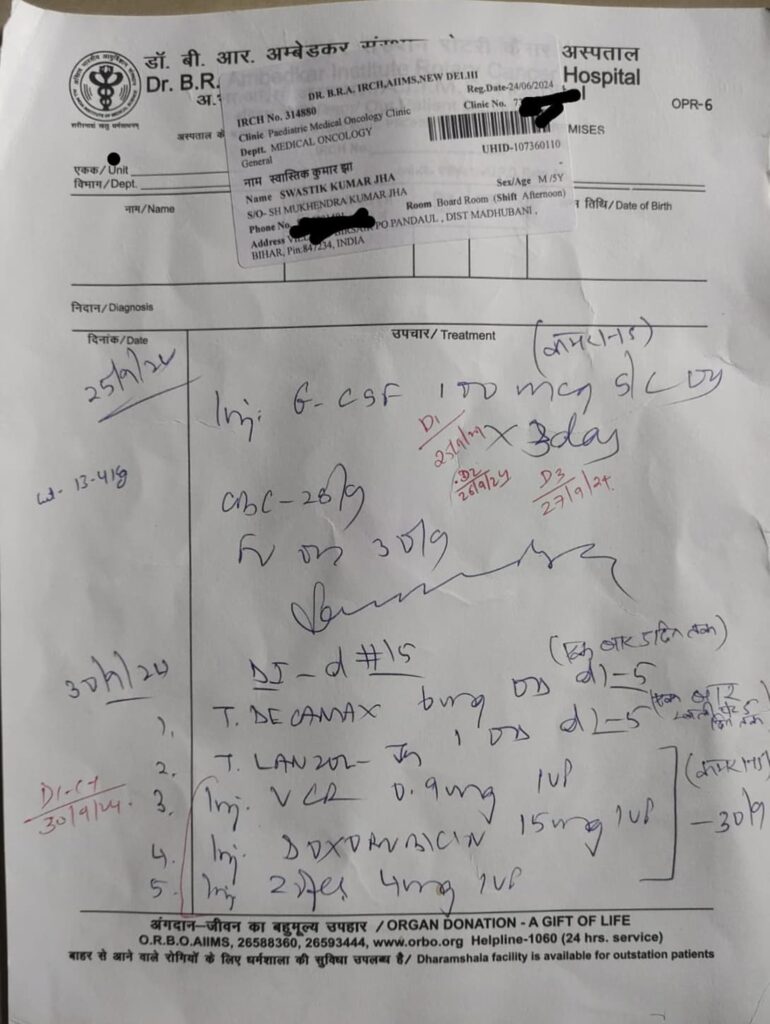 डॉ. बी. आर. अम्बेडकर
अस्पताल
Dr. B.R.
Hospital
OPR-6
अस्पताल के
MISES
DR. B.R.A. IRCH,AIIMS,NEW DELHI
Reg.Date-24/06/2024
IRCH No. 314880
Clinic No.
Clinic Paediatric Medical Oncology Clinic
Deptt. MEDICAL ONCOLOGY
General
UHID-107360110
नाम स्वास्तिक कुमार झा
Name SWASTIK KUMAR JHA
Sex/Age M /5Y
S/O- SH MUKHENDRA KUMAR JHA
Room Board Room (Shift Afternoon)
Phone No.
Address PO PANDAUL , DIST MADHUBANI ,
BIHAR, Pin:847234, INDIA
एकक/Unit
विभाग/Dept.
नाम/Name
तिथि/Date of Birth
निदान/Diagnosis
दिनांक/Date
उपचार/Treatment
25/9/24
Inj. G-CSF 100 mcg S/C OD
D1
25/9/24
x 3day
D2
26/9/24
D3
27/9/24
wt-
CBC-28/9
on 30/9
30/9/24
d #15
(एक बार 5 दिन तक)
1. T. DECAMAX 6mg OD d1-5
2. T. LANZOL-Jn 1 OD d1-5
30/9/24
3. Inj. VCR 0.9mg IVP
4. Inj. DOXORUBICIN 15mg IVP
-30/9
5. Inj 4mg IVP
अंगदान–जीवन का बहुमूल्य उपहार / ORGAN DONATION - A GIFT OF LIFE
O.R.B.O.AIIMS, 26588360, 26593444, www.orbo.org Helpline-1060 (24 hrs. service)
बाहर से आने वाले रोगियों के लिए धर्मशाला की सुविधा उपलब्ध है/ Dharamshala facility is available for outstation patients